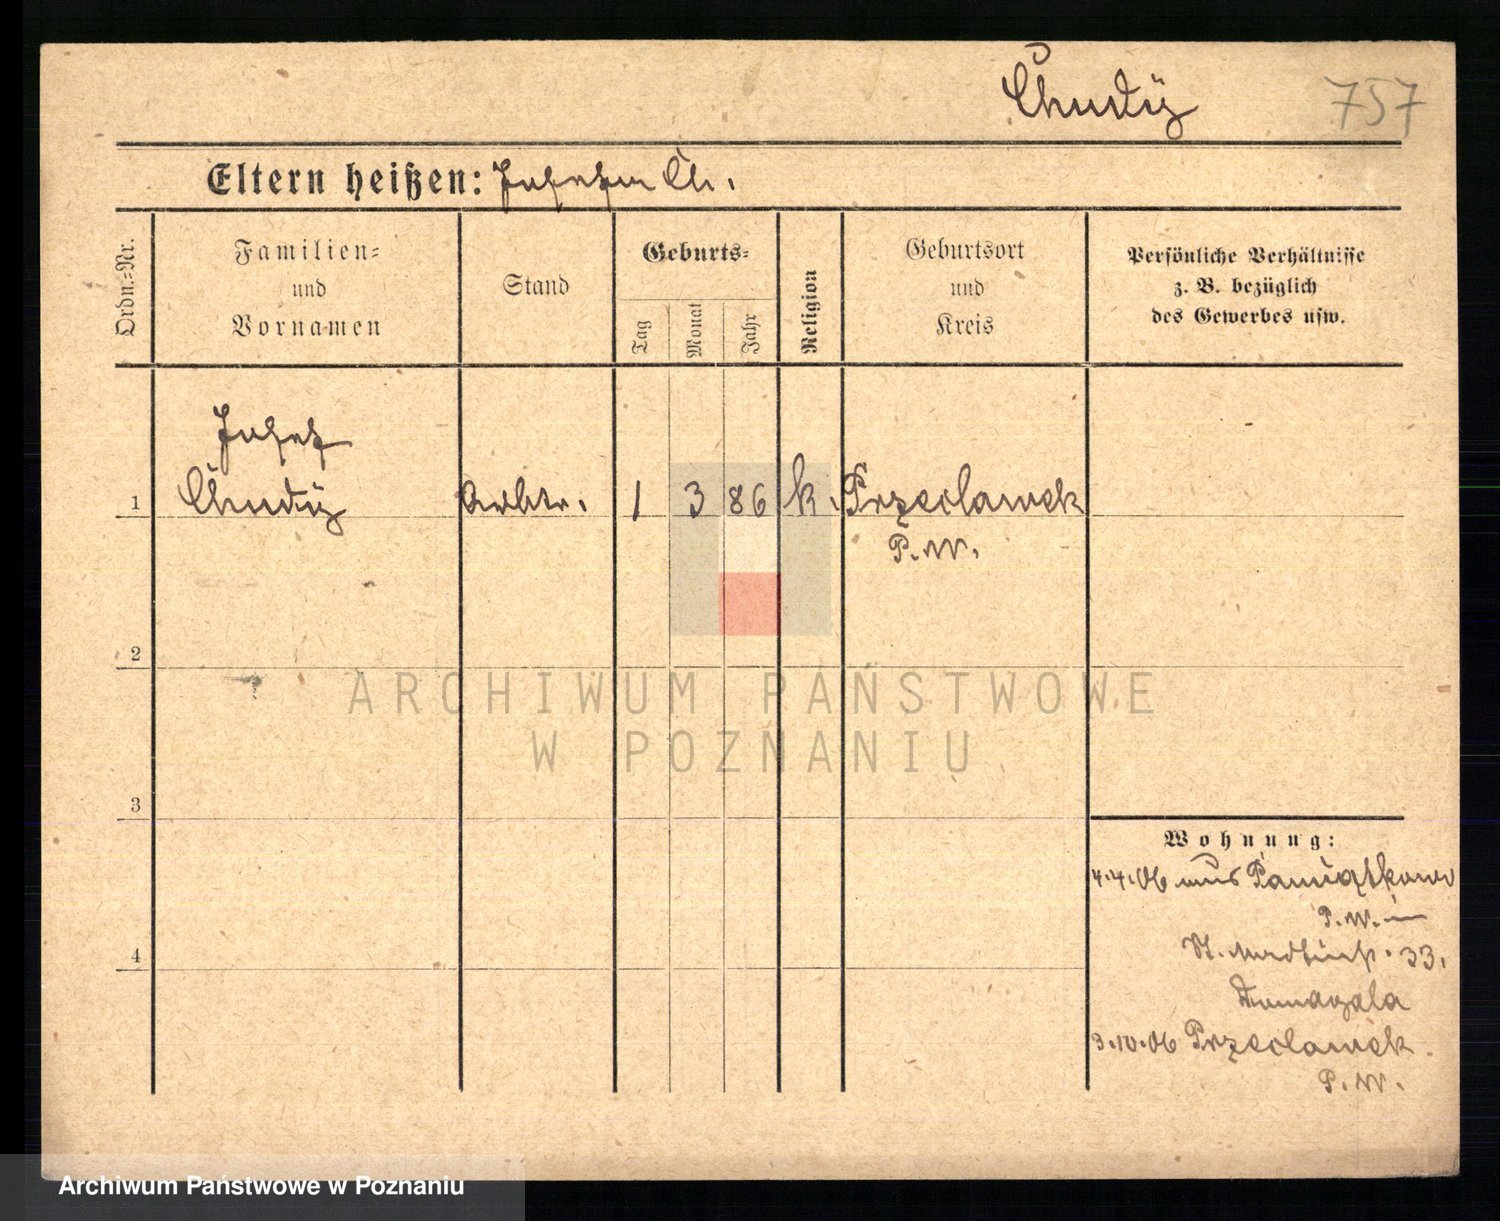 Chudy
757
Eltern heißen: Ch.
Ordn.-Nr.
Familien-
und
Vornamen
Stand
Geburts-
Tag
Monat
Jahr
Religion
Geburtsort
und
Kreis
Persönliche Verhältnisse
z. B. bezüglich
des Gewerbes usw.
Josef
1 Chudy Arbtr. 1 3 86 k. Przeclawek
P. W.
2
ARCHIWUM PAŃSTWOWE
W POZNANIU
3
Wohnung:
4.4.06 aus Pamiątkowo
P. W. in
St. 33.
4
Domagala
3.10.06 Przeclawek
P. W.
Archiwum Państwowe w Poznaniu